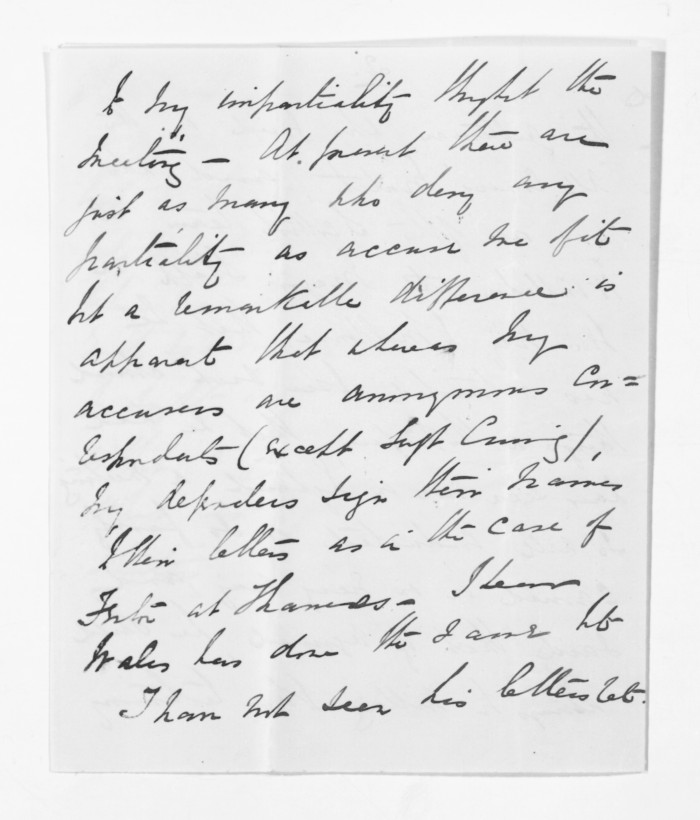 to my impartiality thught the
meeting – At present there are
just as many who deny any
partiality as accuse me of it
but a remarkable difference is
apparent that whereas my
accusers are anonymous Cor=
respondents (except Supt),
my defenders sign their names
to their letters as in the case of
at Thames – I hear
Wales has done the same but
I have not seen his letters yet.